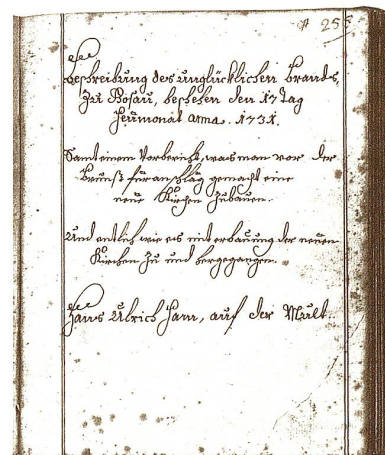 A 255
Beschreibung des unglücklichen Brands,
Zu Bosau, beschehen den 17 Tag
Heumonat anna. 1731.
Samt einem Vorbericht, was man vor der
Brunst für anschläg gemacht eine
neüe Kirchen Zubauen.
Und entlich wie es mit erbauung der neüen
Kirchen Zu und hergegangen.
Hans Ulrich, auf der Mült.